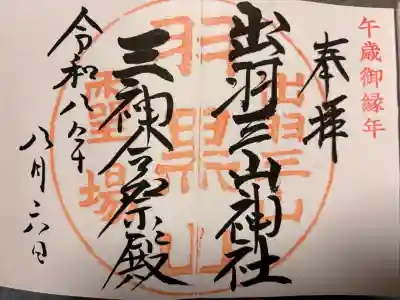 午歳御縁年
奉拝
出羽三山神社
三神合祭殿
令和八年
八月六日
出羽三山
羽黒山
霊場